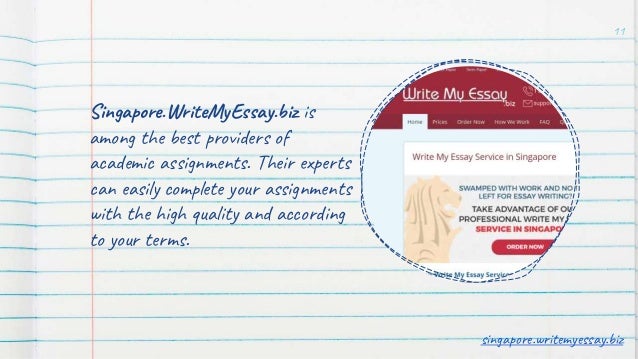 11
Singapore.WriteMyEssay.biz is
among the best providers of
academic assignments. Their experts
can easily complete your assignments
with the high quality and according
to your terms.
Write My Essay
.biz
suppo
Home Prices Order Now How We Work FAQ
Write My Essay Service in Singapore
SWAMPED WITH WORK AND NO
LEFT FOR ESSAY WRITING?
TAKE ADVANTAGE OF OU
PROFESSIONAL WRITE MY
SERVICE IN SINGAPO
ORDER NOW
Write My Essay Servic
singapore.writemyessay.biz